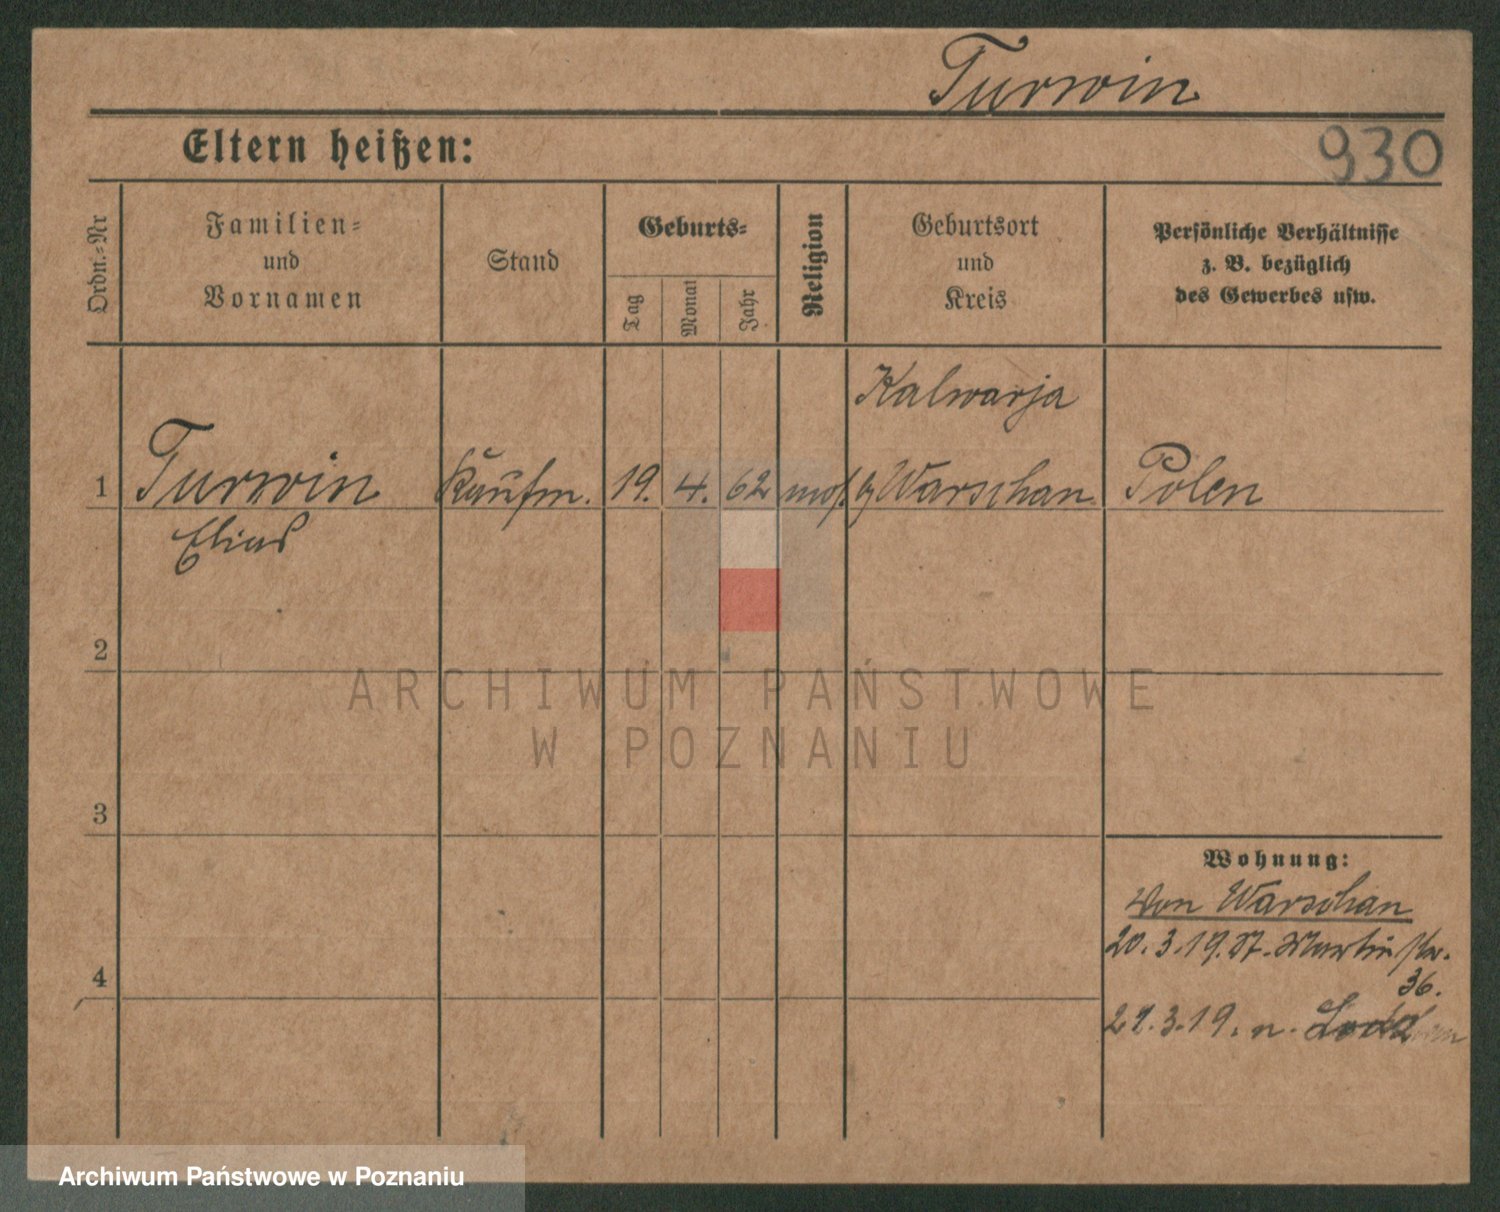 Turwin
Eltern heißen:
930
Ordn.-Nr
Familien-
und
Vornamen
Stand
Geburts-
Tag
Monat
Jahr
Religion
Geburtsort
und
Kreis
Persönliche Verhältnisse
z. B. bezüglich
des Gewerbes usw.
Kalwarja
1 Turwin Kaufm. 19. 4. 62 mos. Warschau Polen
Elias
2
ARCHIWUM PAŃSTWOWE
W POZNANIU
3
Wohnung:
von Warschau
4
20.3.19. St. Martinstr.
36.
22.3.19. n. Lodz
Archiwum Państwowe w Poznaniu